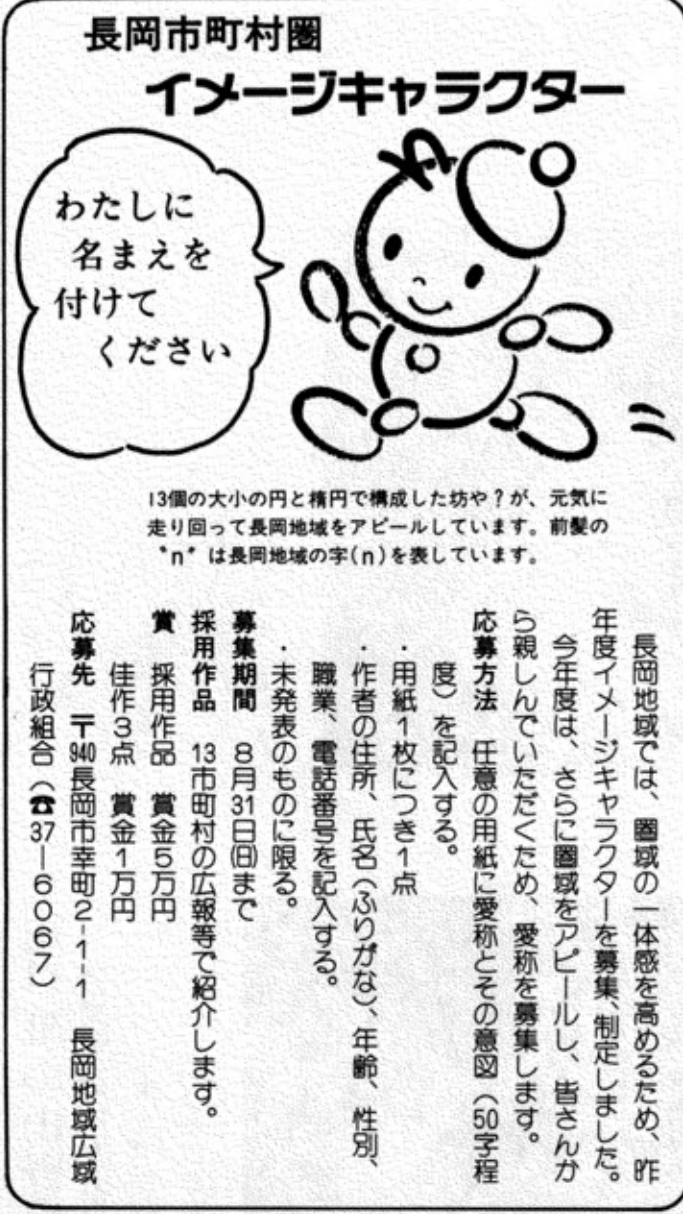 長岡市町村圏
イメージキャラクター
わたしに
名まえを
付けて
ください
13個の大小の円と楕円で構成した坊や?が、元気に
走り回って長岡地域をアピールしています。前髪の
〝n〞は長岡地域の字(n)を表しています。
長岡地域では、圏域の一体感を高めるため、昨
年度イメージキャラクターを募集、制定しました。
今年度は、さらに圏域をアピールし、皆さんか
ら親しんでいただくため、愛称を募集します。
応募方法 任意の用紙に愛称とその意図(50字程
度)を記入する。
・用紙1枚につき1点
・作者の住所、氏名(ふりがな)、年齢、性別、
職業、電話番号を記入する。
・未発表のものに限る。
募集期間 8月31日(日)まで
採用作品 13市町村の広報等で紹介します。
賞 採用作品 賞金5万円
佳作3点 賞金1万円
応募先 〒940長岡市幸町2-1-1 長岡地域広域
行政組合(☎37―6067)